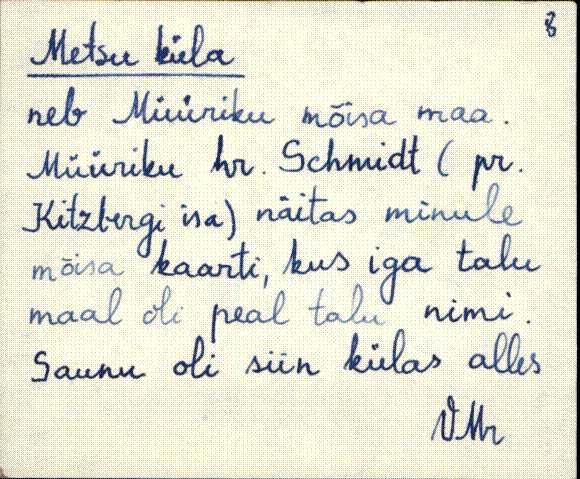 8
Metsu küla
neb Müüriku mõisa maa.
Müüriku hr. Schmidt ( pr.
Kitzbergi isa) näitas minule
mõisa kaarti, kus iga talu
maal oli peal talu nimi.
Saunu oli siin külas alles
VMr